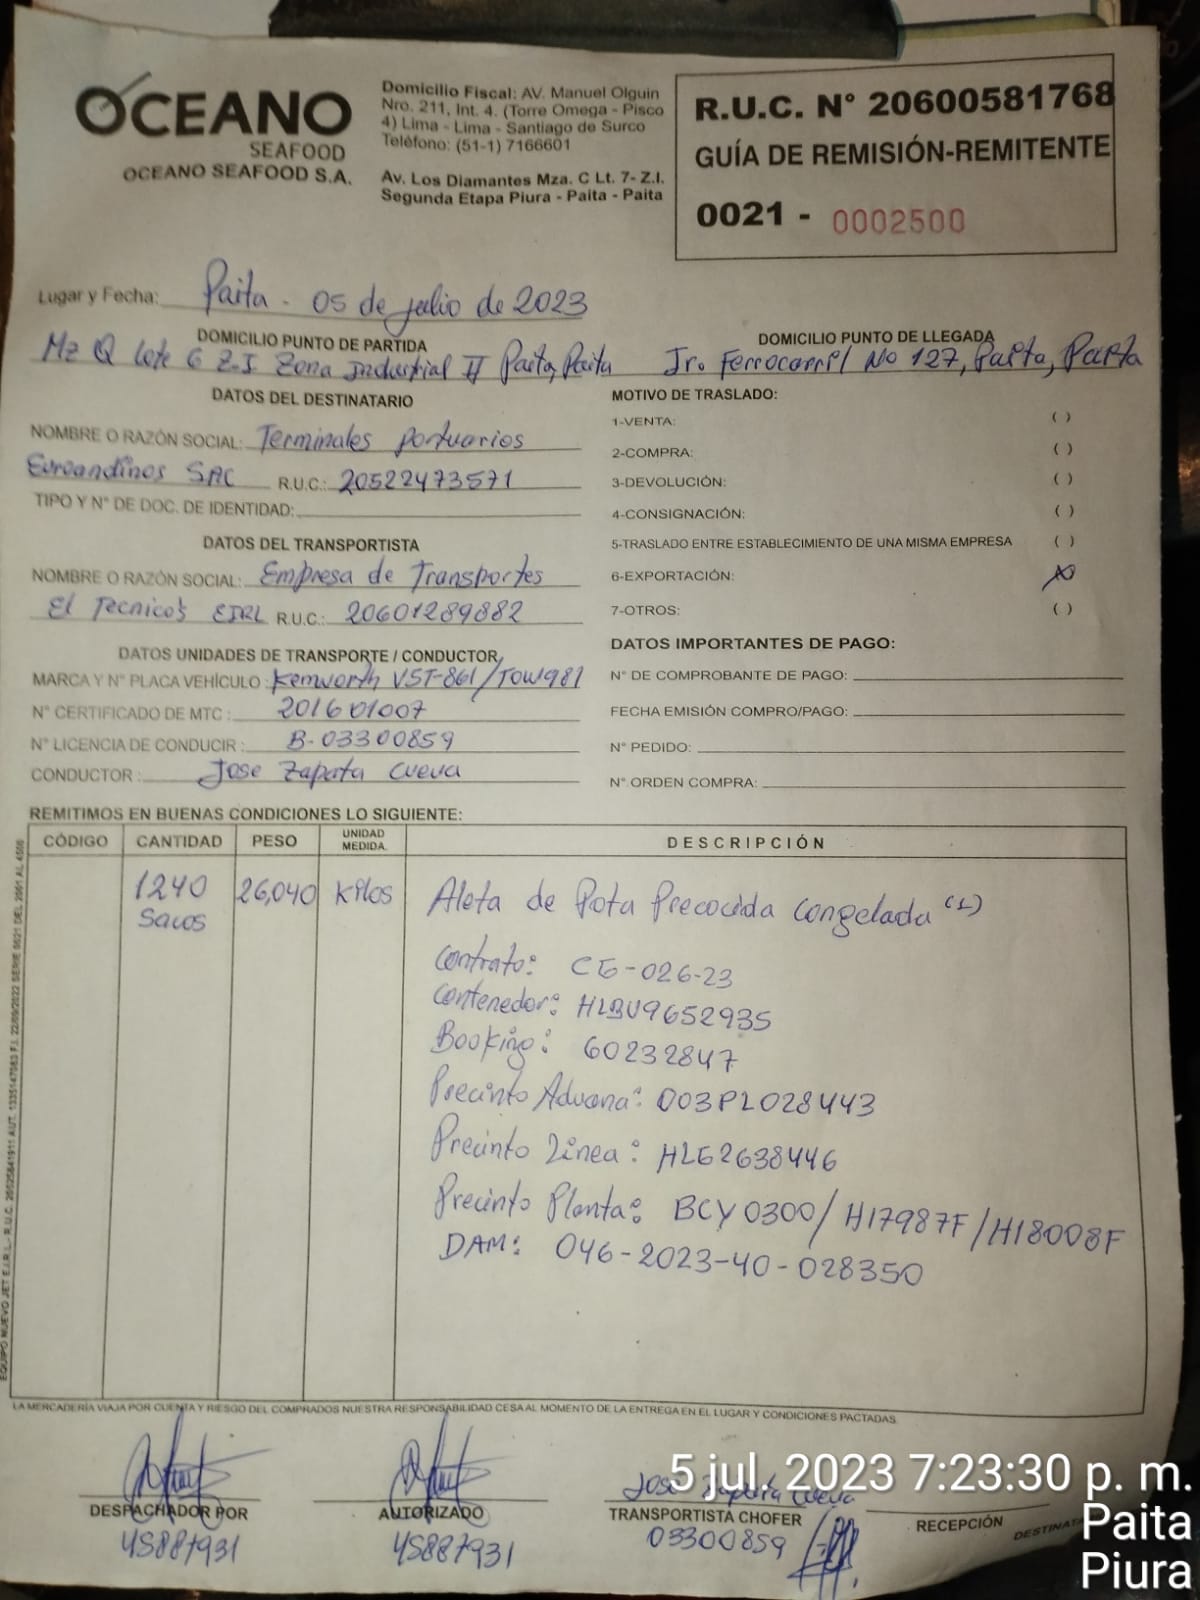 OCEANO
SEAFOOD
OCEANO SEAFOOD S.A.
Domicilio Fiscal: AV. Manuel Olguin
Nro. 211, Int. 4. (Torre Omega - Pisco
4) Lima - Lima - Santiago de Surco
Teléfono: (51-1) 7166601
Av. Los Diamantes Mza. C Lt. 7- Z.I.
Segunda Etapa Piura - Paita - Paita
R.U.C. N° 20600581768
GUÍA DE REMISIÓN-REMITENTE
0021 - 0002500
Lugar y Fecha: Paita - 05 de julio de 2023
DOMICILIO PUNTO DE PARTIDA
Mz Q lote 6 Z.I Zona Industrial II Paita, Paita
DOMICILIO PUNTO DE LLEGADA
Jr. Ferrocarril No 127, Paita, Paita
DATOS DEL DESTINATARIO
NOMBRE O RAZÓN SOCIAL: Terminales portuarios
Euroandinos SAC R.U.C.: 20522473571
TIPO Y N° DE DOC. DE IDENTIDAD:
DATOS DEL TRANSPORTISTA
NOMBRE O RAZÓN SOCIAL: Empresa de Transportes
El Tecnico's EIRL R.U.C.: 20601289882
DATOS UNIDADES DE TRANSPORTE / CONDUCTOR
MARCA Y N° PLACA VEHÍCULO: Kemworth V5T-861/TOW981
N° CERTIFICADO DE MTC: 201601007
N° LICENCIA DE CONDUCIR: B-03300859
CONDUCTOR: Jose Zapata Cueva
MOTIVO DE TRASLADO:
1-VENTA: ( )
2-COMPRA: ( )
3-DEVOLUCIÓN: ( )
4-CONSIGNACIÓN: ( )
5-TRASLADO ENTRE ESTABLECIMIENTO DE UNA MISMA EMPRESA ( )
6-EXPORTACIÓN: (X)
7-OTROS: ( )
DATOS IMPORTANTES DE PAGO:
N° DE COMPROBANTE DE PAGO:
FECHA EMISIÓN COMPRO/PAGO:
N° PEDIDO:
N° ORDEN COMPRA:
REMITIMOS EN BUENAS CONDICIONES LO SIGUIENTE:
CÓDIGO CANTIDAD PESO UNIDAD MEDIDA. DESCRIPCIÓN
1240 26,040 Kilos Aleta de Pota Precocida congelada (L)
Sacos
Contrato: CE-026-23
Contenedor: HLBU9652935
Booking: 60232847
Precinto Aduana: 003PL028443
Precinto Linea: HLE2638446
Precinto Planta: BCY0300/H17987F/H18008F
DAM: 046-2023-40-028350
LA MERCADERÍA VIAJA POR CUENTA Y RIESGO DEL COMPRADOS NUESTRA RESPONSABILIDAD CESA AL MOMENTO DE LA ENTREGA EN EL LUGAR Y CONDICIONES PACTADAS
DESPACHADOR POR
45887931
AUTORIZADO
45887931
Jose Zapata Cueva
TRANSPORTISTA CHOFER
03300859
RECEPCIÓN
5 jul. 2023 7:23:30 p. m.
Paita
Piura